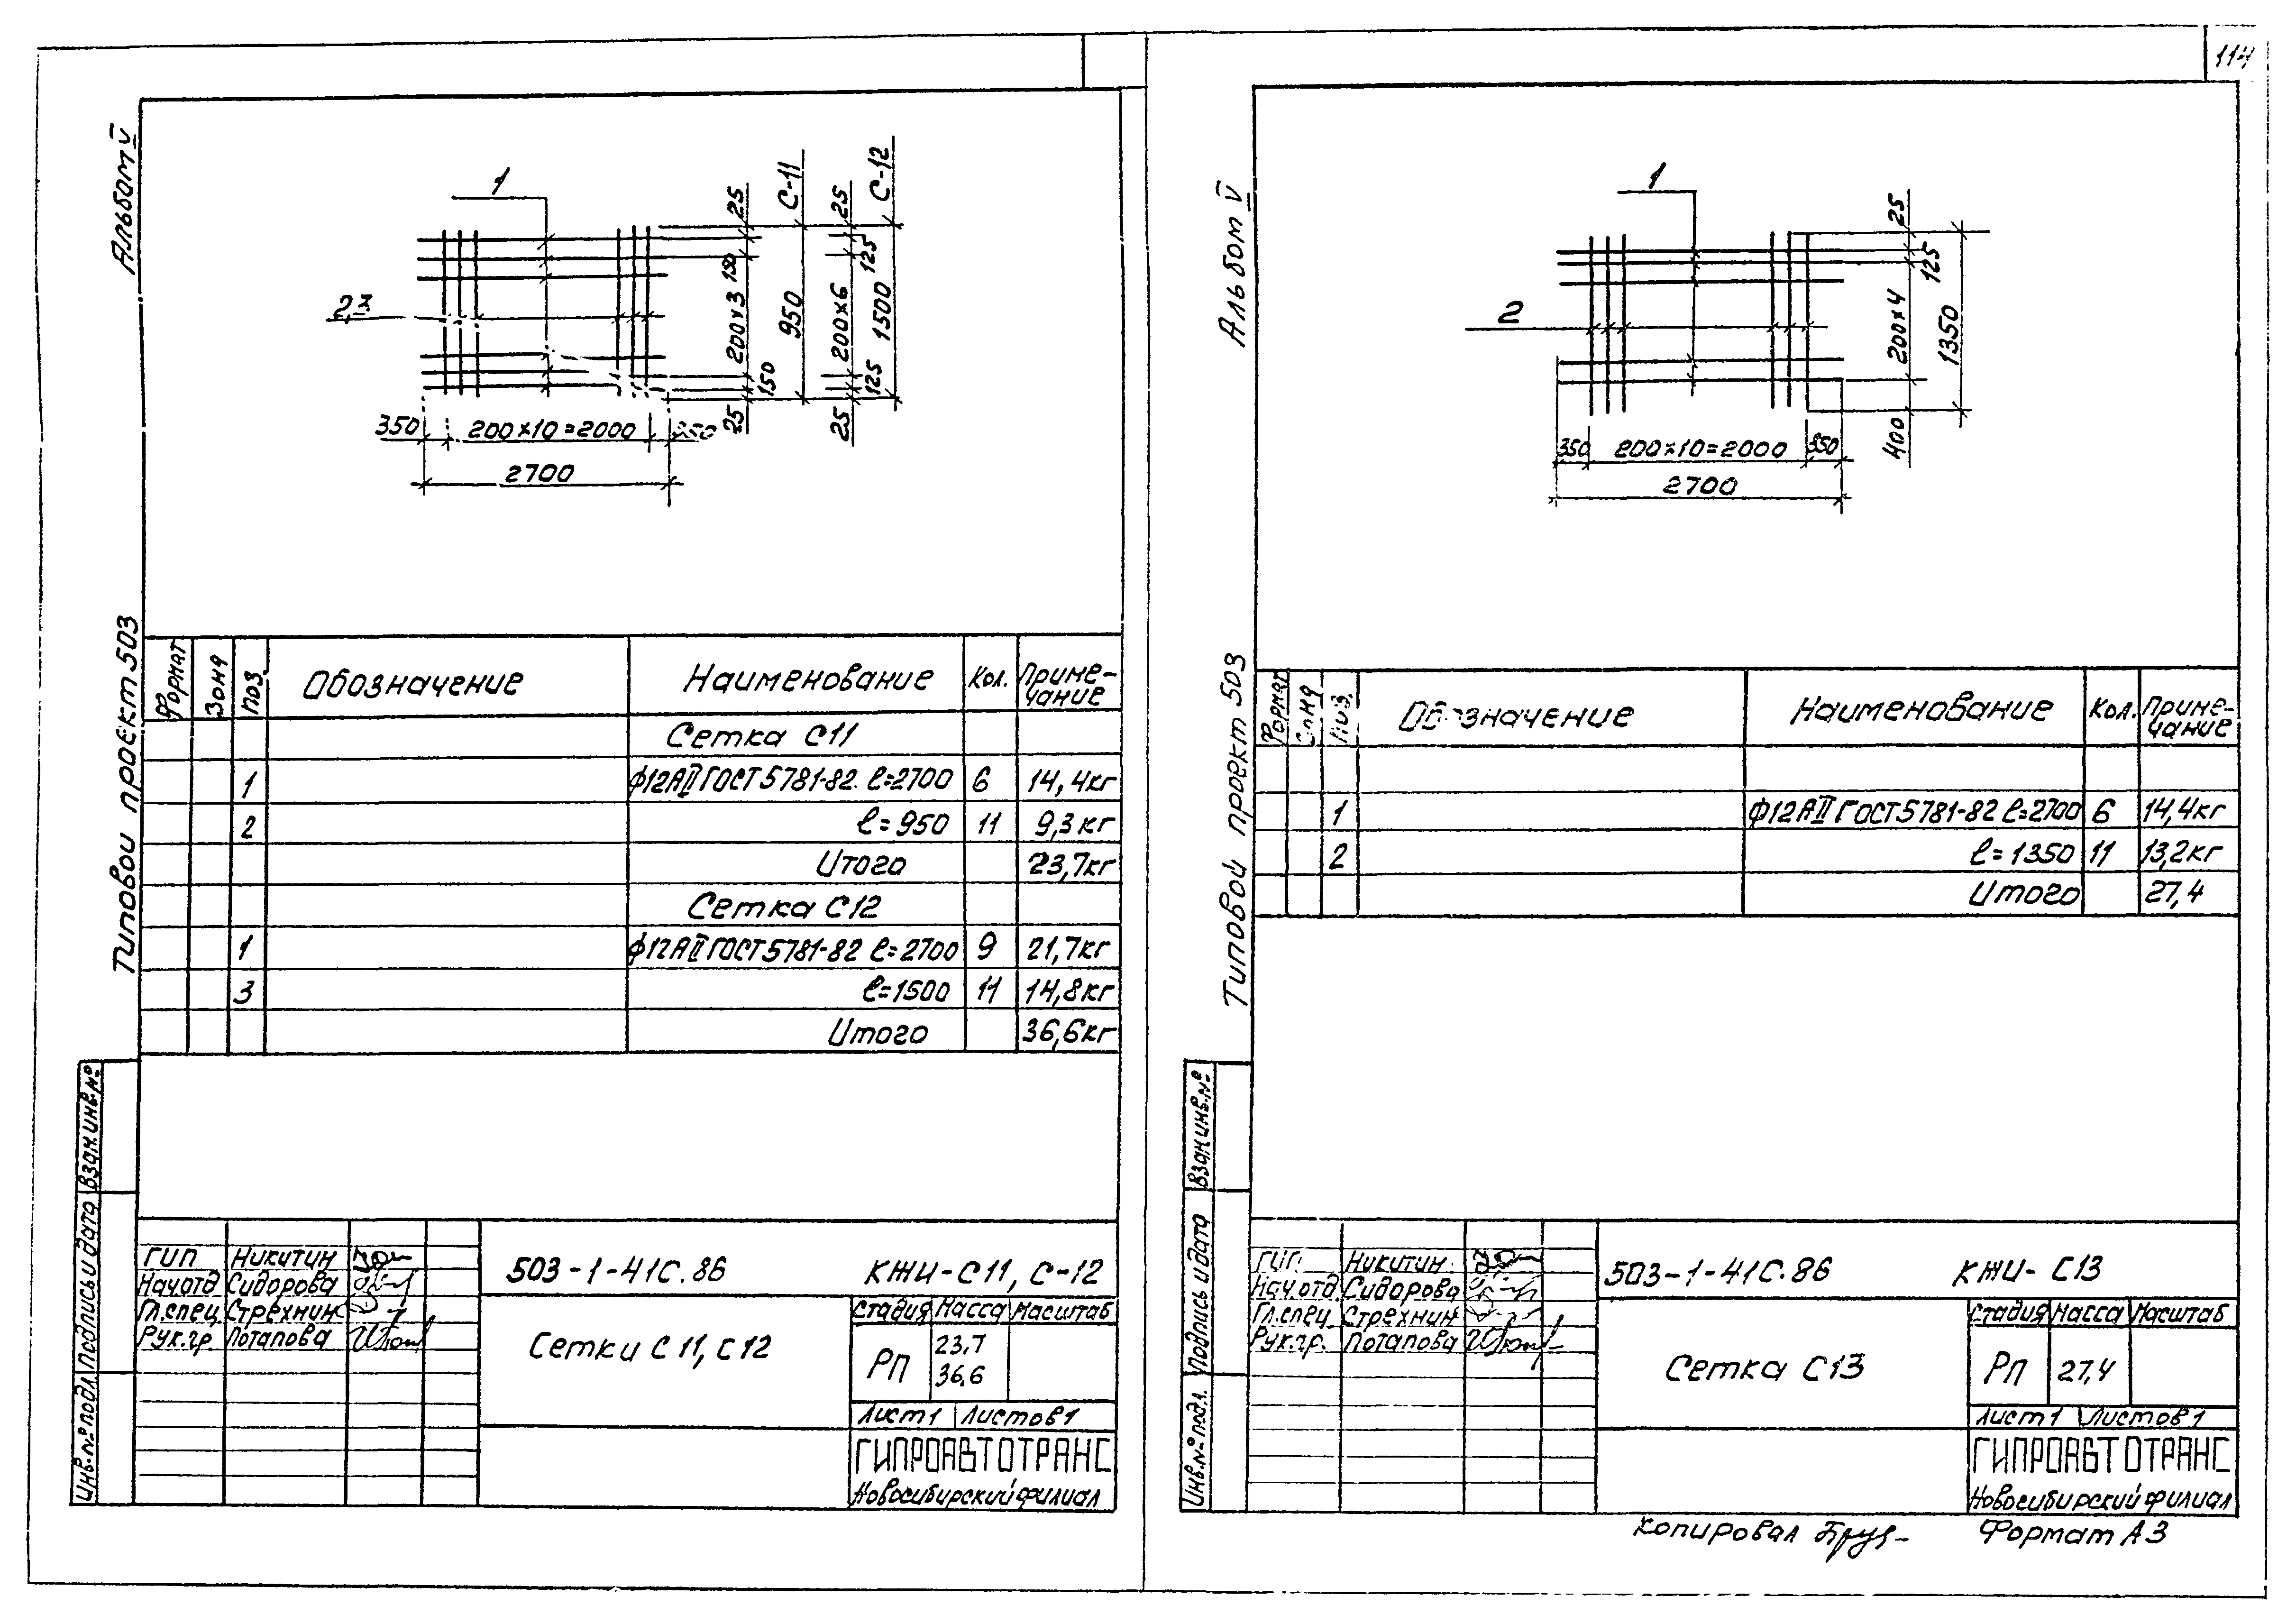 114
Альбом V
1
2,3
25
150
200×3
150
25
С-11
950
25
125
200×6
125
25
С-12
1500
350 200×10=2000 350
2700
Типовой проект 503
Формат Зона Поз Обозначение Наименование Кол. Приме-
чание
Сетка С11
1 ф12АII ГОСТ 5781-82. ℓ=2700 6 14,4кг
2 ℓ=950 11 9,3кг
Итого 23,7кг
Сетка С12
1 ф12АII ГОСТ 5781-82 ℓ=2700 9 21,7кг
3 ℓ=1500 11 14,8кг
Итого 36,6кг
Взам.инв.№
Подпись и дата
Инв.№ подл.
ГИП Никитин
Нач.отд Сидорова
Гл.спец. Стрехнин
Рук.гр. Потапова
503-1-41С.86 КЖИ-С11, С-12
Сетки С11, С12
Стадия Масса Масштаб
РП 23.7
36.6
Лист 1 Листов 1
ГИПРОАВТОТРАНС
Новосибирский филиал
Альбом V
1
2
25
125
200×4
400
1350
350 200×10=2000 350
2700
Типовой проект 503
Формат Зона Поз. Обозначение Наименование Кол. Приме-
чание
1 ф12АII ГОСТ 5781-82 ℓ=2700 6 14,4кг
2 ℓ=1350 11 13,2кг
Итого 27,4
Взам.инв.№
Подпись и дата
Инв.№ подл.
ГИП Никитин
Нач.отд. Сидорова
Гл.спец. Стрехнин
Рук.гр. Потапова
503-1-41С.86 КЖИ-С13
Сетка С13
Стадия Масса Масштаб
РП 27,4
Лист 1 Листов 1
ГИПРОАВТОТРАНС
Новосибирский филиал
Копировал Формат А3